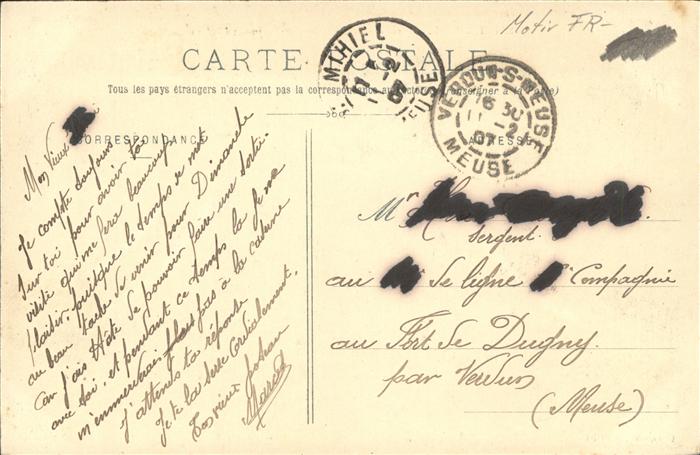 Motiv FR-
CARTE POSTALE
Tous les pays étrangers n'acceptent pas la correspondance au recto (se renseigner à la Poste)
CORRESPONDANCE
ADRESSE
ST MIHIEL
MEUSE
VERDUN-S-MEUSE
16 30
11 -2
07
MEUSE
Mon Vieux
Je compte toujours
sur toi pour avoir ta
visite qui me fera beaucoup
plaisir, puisque le temps se met
au beau tache de venir pour Dimanche
car j'ais Hate de pouvoir faire une sortie
avec toi, et pendant ce temps la je ne
m'emmerderai plus pas à la caserne
J'attends ta réponse
Je te la serre Cordialement,
Ton vieux
Marcel
Mr
Sergent
au de ligne Compagnie
au Fort de Dugny
par Verdun
(Meuse)